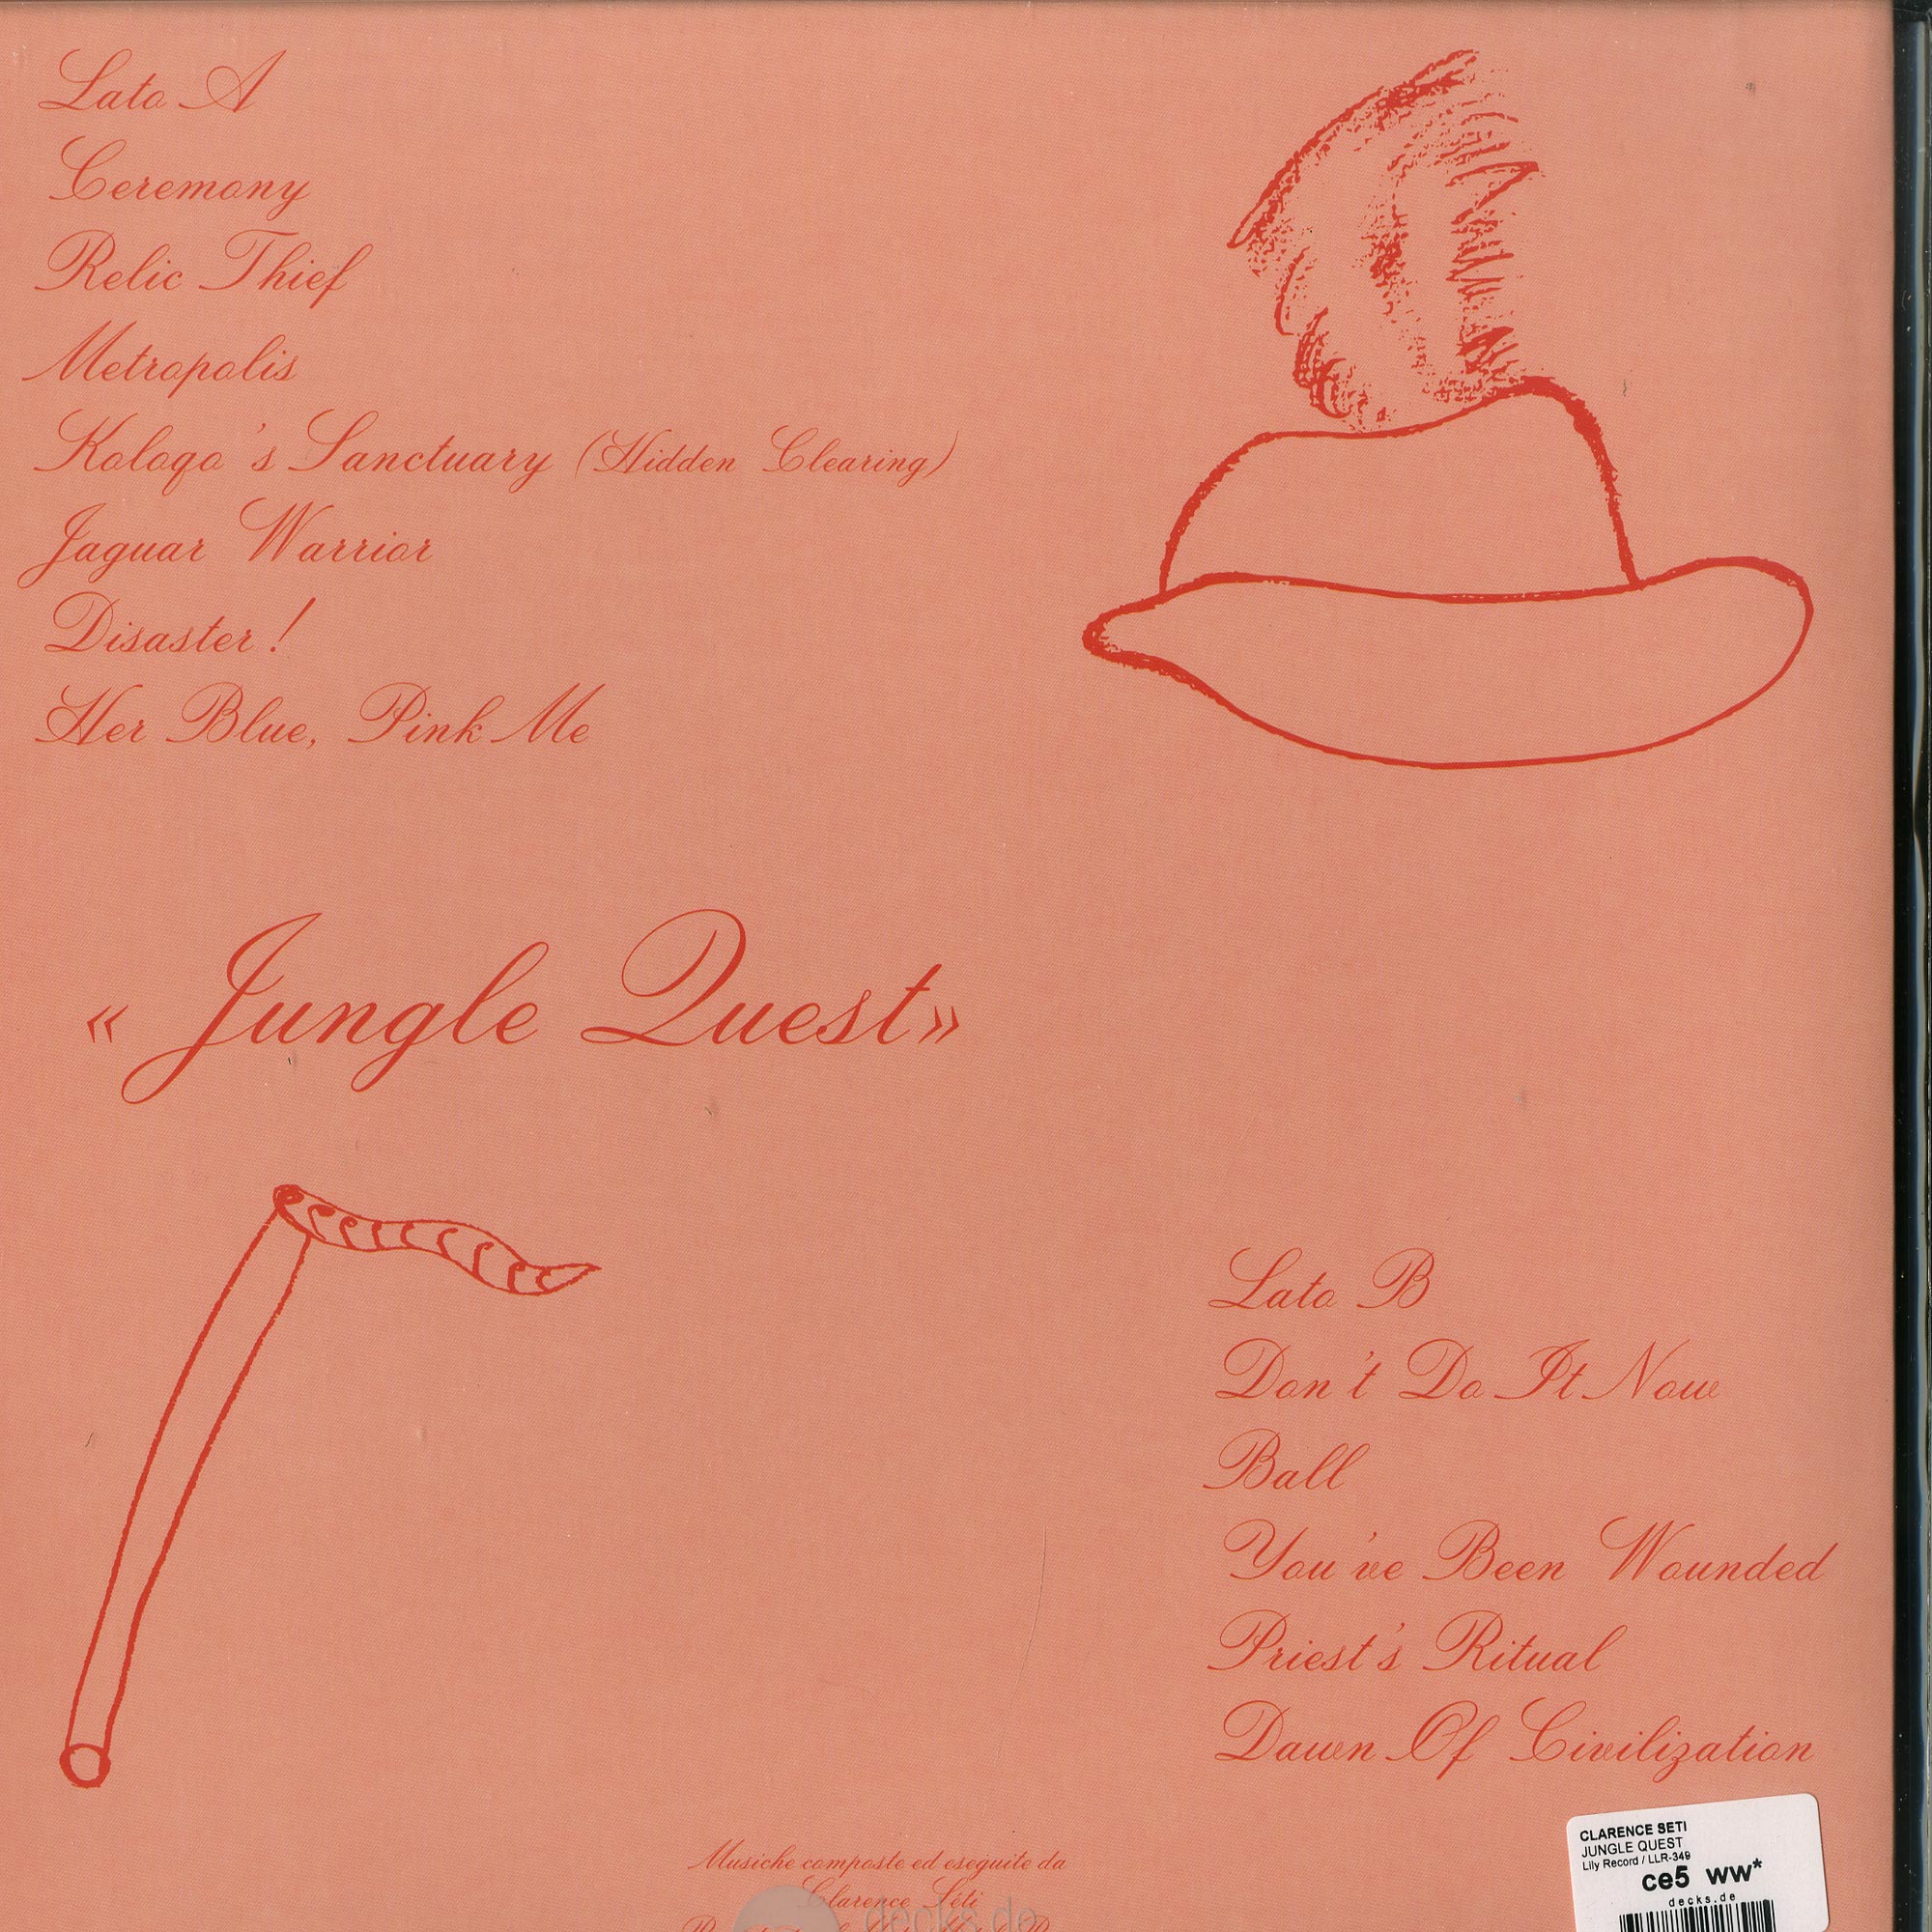 Lato A
Ceremony
Relic Thief
Metropolis
Kologo's Sanctuary (Hidden Clearing)
Jaguar Warrior
Disaster!
Her Blue, Pink Me
« Jungle Quest»
Lato B
Don't Do It Now
Ball
You've Been Wounded
Priest's Ritual
Dawn Of Civilization
Musiche composte ed eseguite da
Clarence Séti
decks.de
CLARENCE SETI
JUNGLE QUEST
Lily Record / LLR-349
ce5 ww*
decks.de